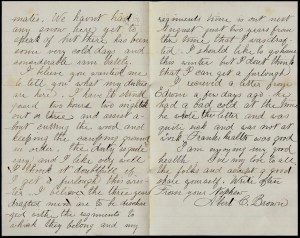 mates. We havent had
any snow here yet to
speak of but there has been
some very cold days and
considerable rain lately.
I believe you wanted me
to tell you what my duties
are here. I have to stand
guard two hours two nights
out of three and assist a-
bout cutting the wood and
keeping the camping ground
in order. the duty is quite
easy and I like very well
I think it doubtful if
I get a furlough this win-
ter. I believe the three years
drafted men are to be dischar-
ged with the regiments to
which they belong and my
regiments time is out next
August just two years from
the time that I was draf-
ted. I should like to go home
this winter but I dont think
that I can get a furlough
I received a letter from
Edwin a few days ago he
had a bad cold at the time
he wrote the letter and was
quite sick and was not at
work. Franks health was good.
I am enjoying my good
health. I've my love to all
the folks and accept a good
share yourself. Write often
From your Nephew
Albert O. Brown